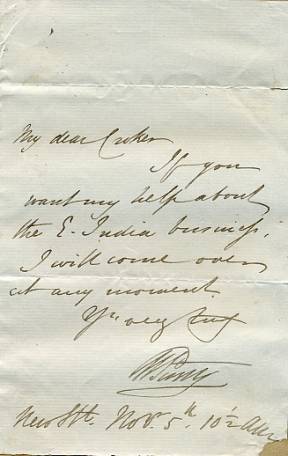 My dear Croker
If you
want my help about
the E. India business,
I will come over
at any moment.
Yrs very truly
New St. Nov. 5th. 10 1/2 AM